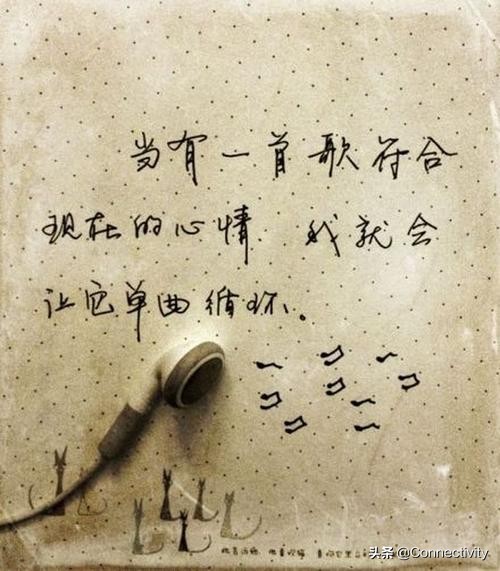 当有一首歌符合
现在的心情 我就会
让它单曲循环。
头条 @Connectivity